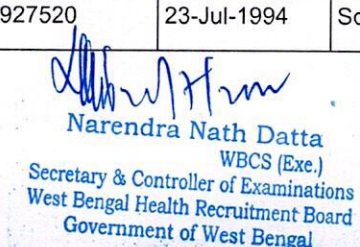 927520 23-Jul-1994
Narendra Nath Datta
WBCS (Exe.)
Secretary & Controller of Examinations
West Bengal Health Recruitment Board
Government of West Bengal